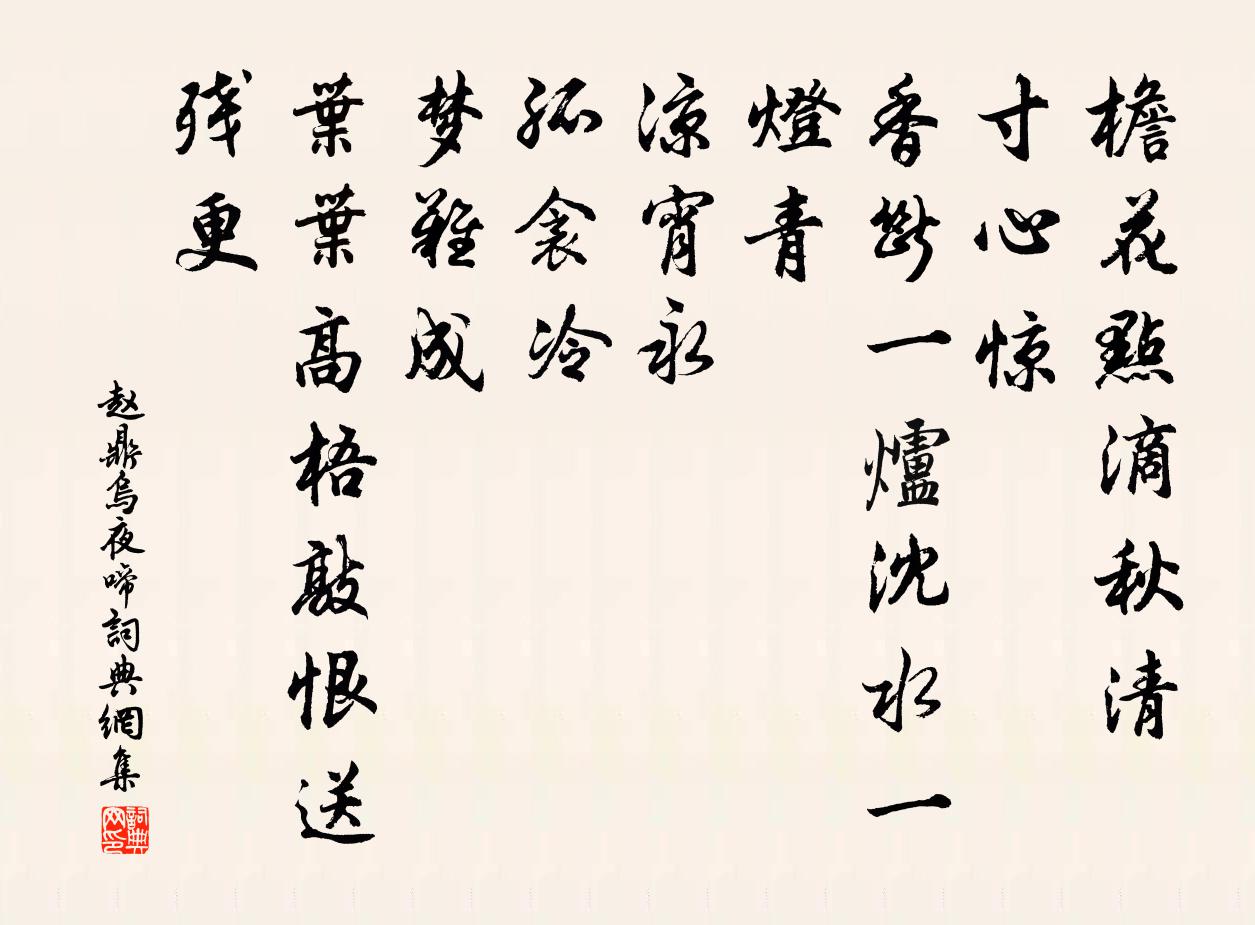 檐花點滴秋清
寸心惊
香斷一爐沈水一
燈青
凉宵永
孤衾冷
梦難成
葉葉高梧敲恨送
残更
赵鼎烏夜啼詞典網集
詞典网印